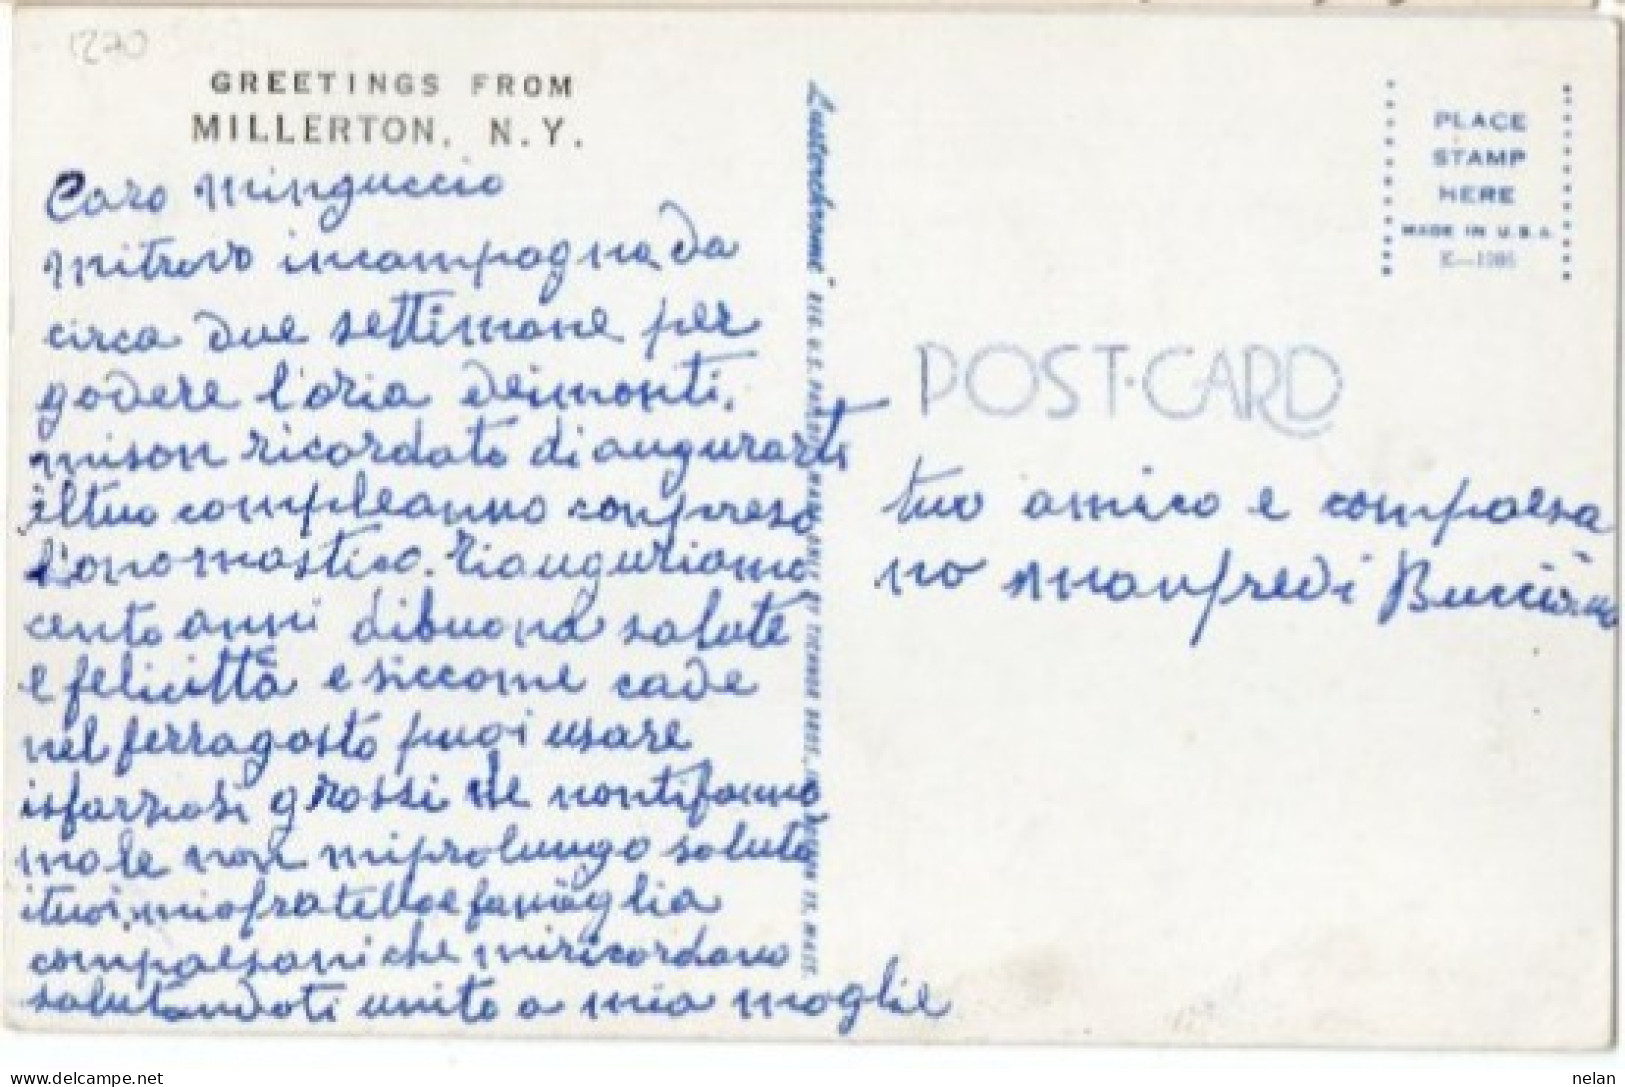 1270
GREETINGS FROM
MILLERTON, N.Y.
Caro Minguccio
mitrovo incampagna da
circa due settimane per
godere l'aria deimonti,
mison ricordato di augurarti
iltuo compleanno conpreso
l'onomastico. Riauguriamo
cento anni dibuona salute
e felicittà e siccome cade
nel ferragosto puoi usare
isfarziosi grossi se nontifanno
male non miprolungo saluta
ituoi, miofratello e famiglia
compaesani che miricordano
salutandoti unito a mia moglie
Lusterchrome REG. U.S. PAT. OFF. MADE ONLY BY TICHNOR BROS., INC. BOSTON 15, MASS.
PLACE
STAMP
HERE
MADE IN U.S.A.
POST-CARD
tuo amico e compaesa
no Manfredi
delcampe.net
nelan